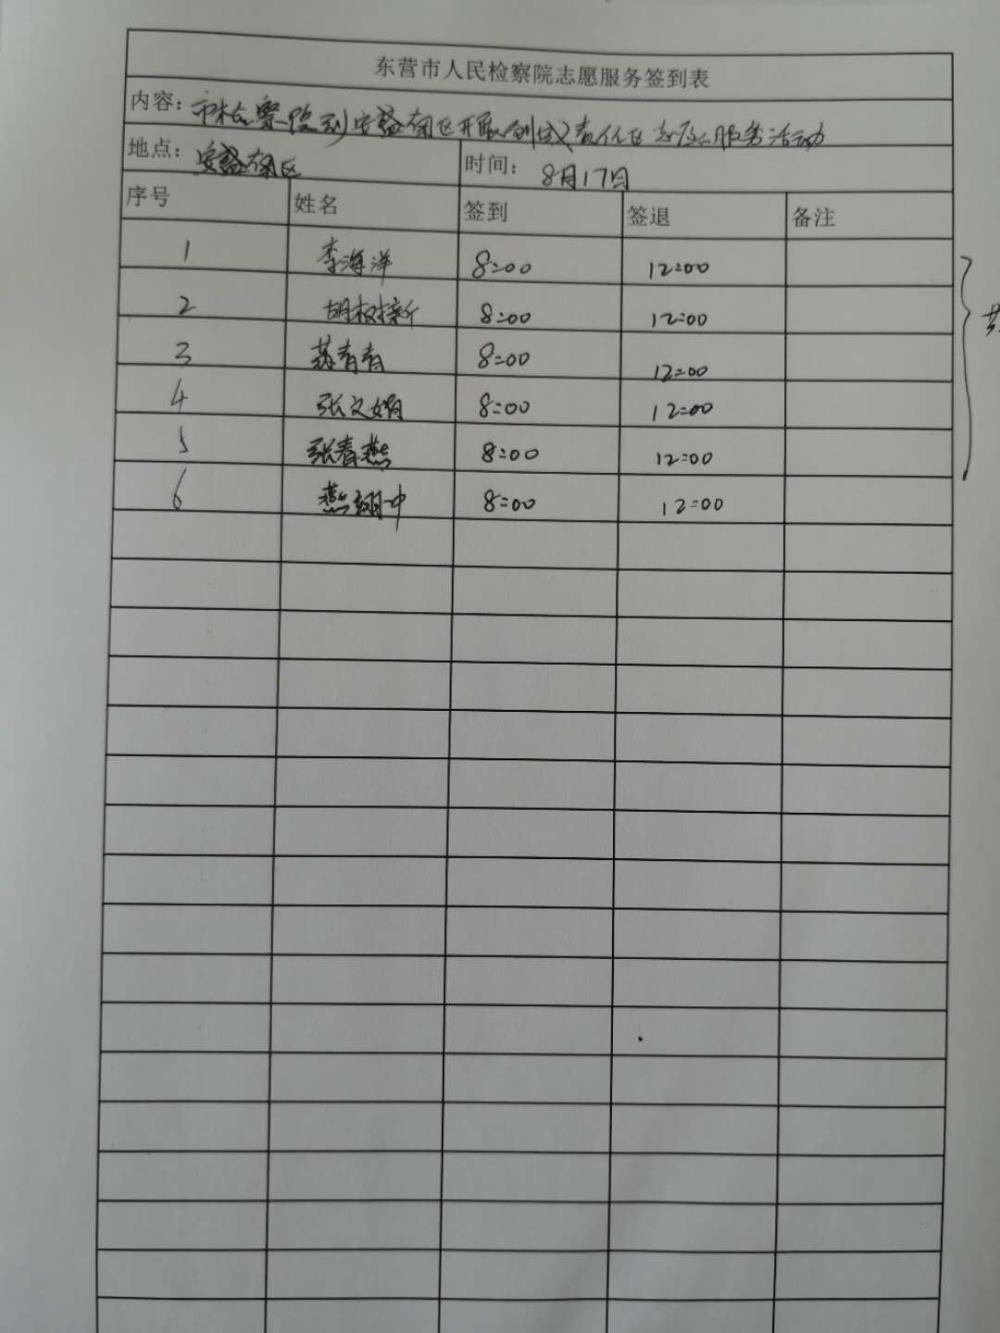 东营市人民检察院志愿服务签到表
内容: 市检察院到安盛南区开展创城责任区志愿服务活动
地点: 安盛南区 时间: 8月17日
序号 姓名 签到 签退 备注
1 李海洋 8:00 12:00
2 胡 新 8:00 12:00
3 苏青青 8:00 12:00
4 张文娟 8:00 12:00
5 张春燕 8:00 12:00
6 燕翊中 8:00 12:00